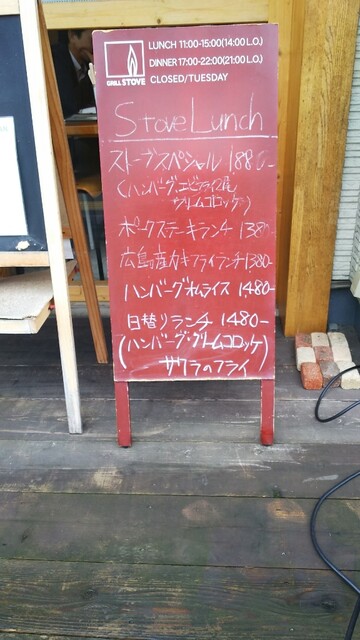 GRILL STOVE
LUNCH 11:00-15:00(14:00 L.O.)
DINNER 17:00-22:00(21:00 L.O.)
CLOSED/TUESDAY
Stove Lunch
ストーブスペシャル 1880-
(ハンバーグ、エビフライ2尾
クリームコロッケ)
ポークステーキランチ 1380-
広島産カキフライランチ 1380-
ハンバーグオムライス 1480-
日替りランチ 1480-
(ハンバーグ・クリームコロッケ
サワラのフライ)